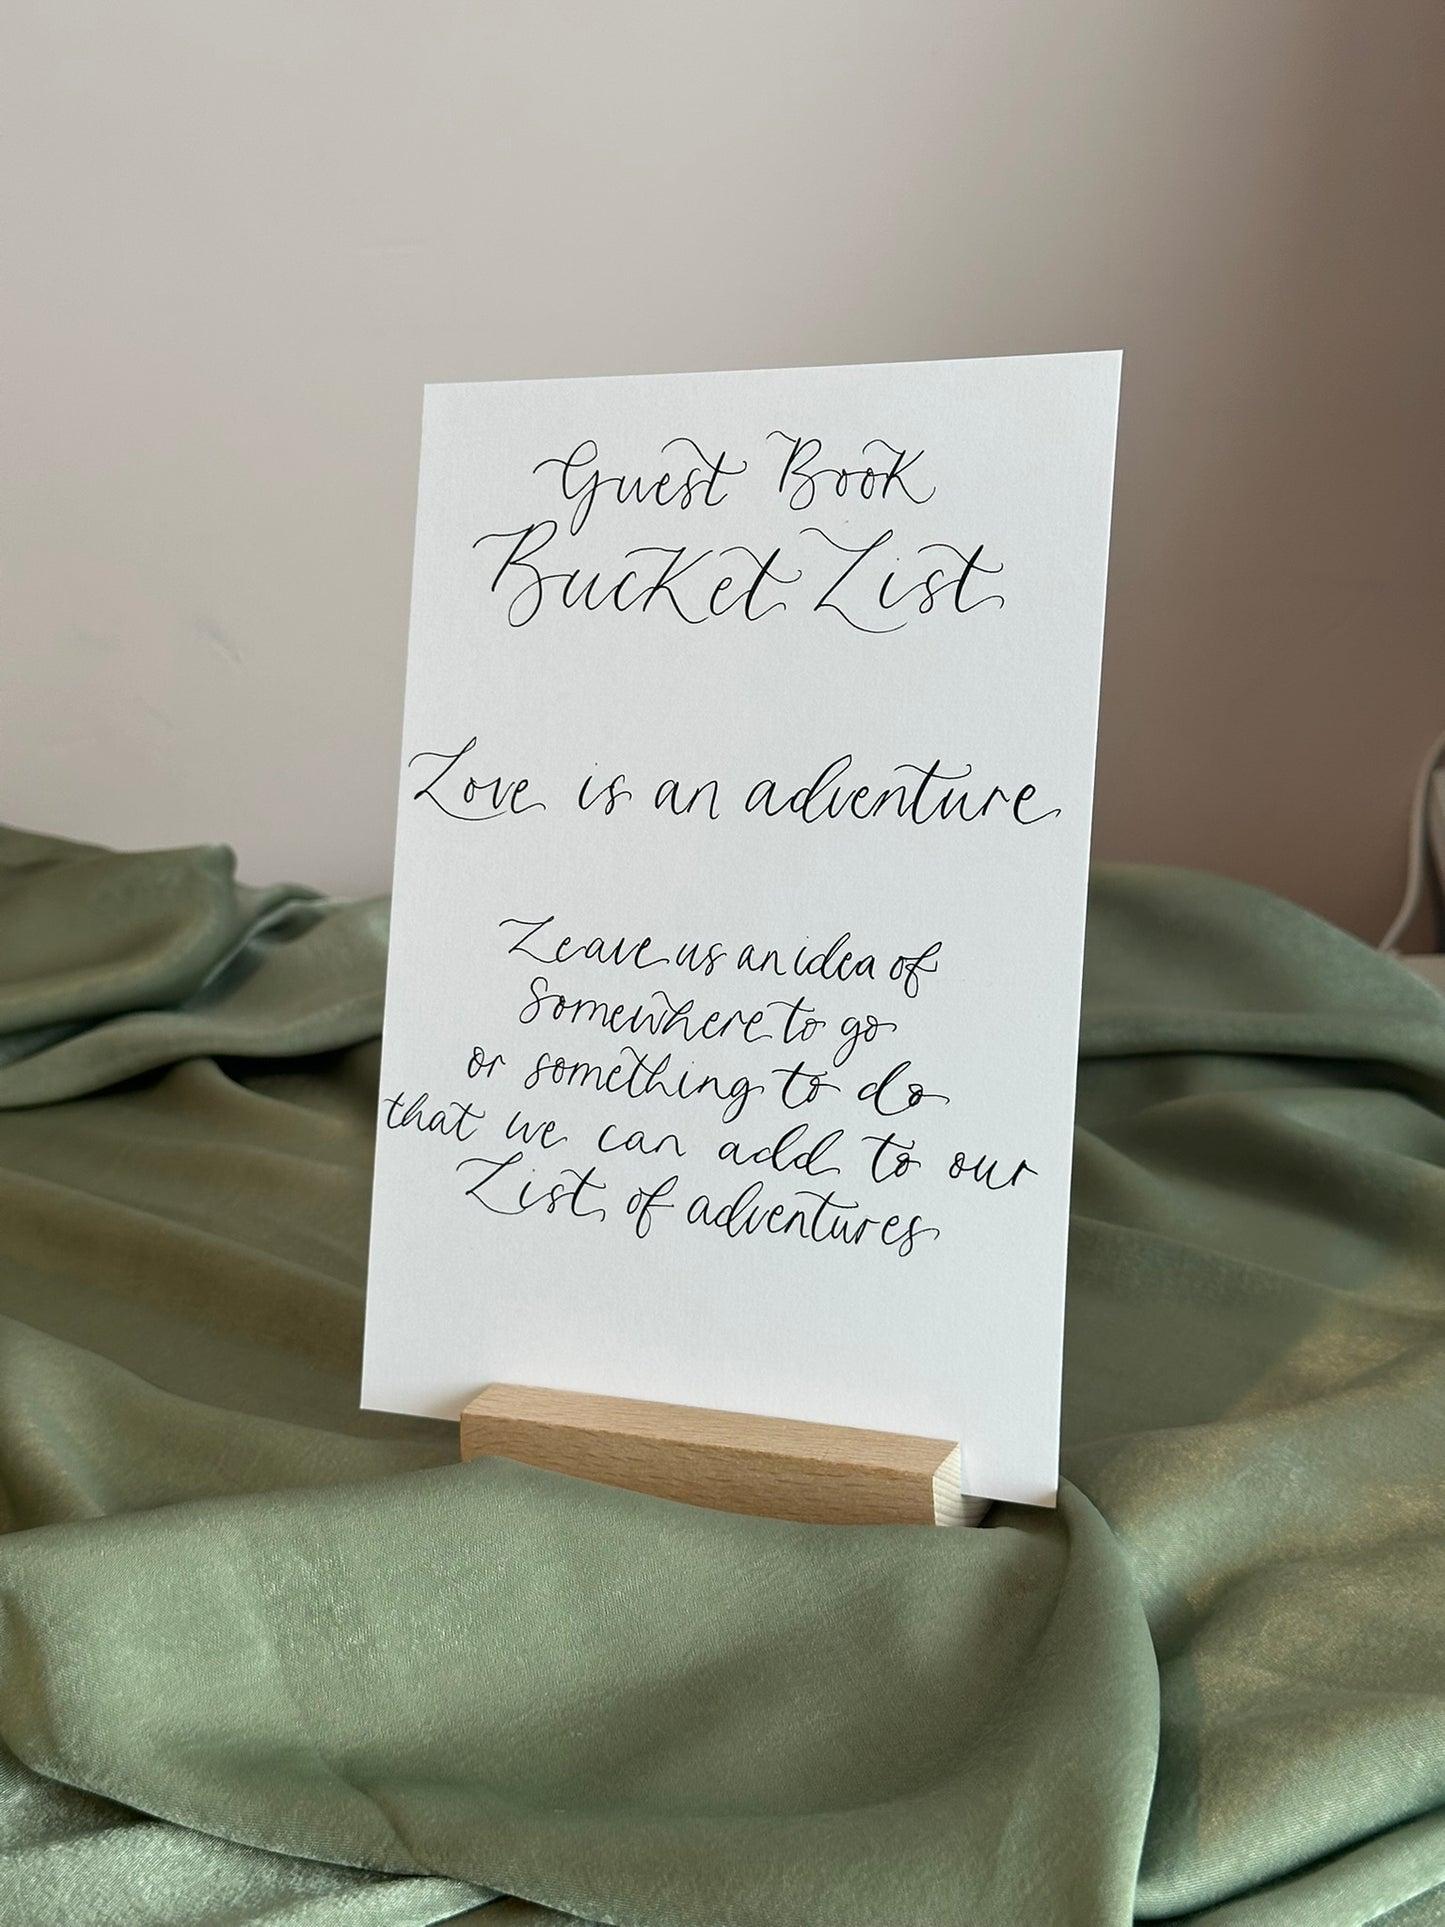 Guest Book
Bucket List
Love is an adventure
Leave us an idea of
somewhere to go
or something to do
that we can add to our
List of adventures